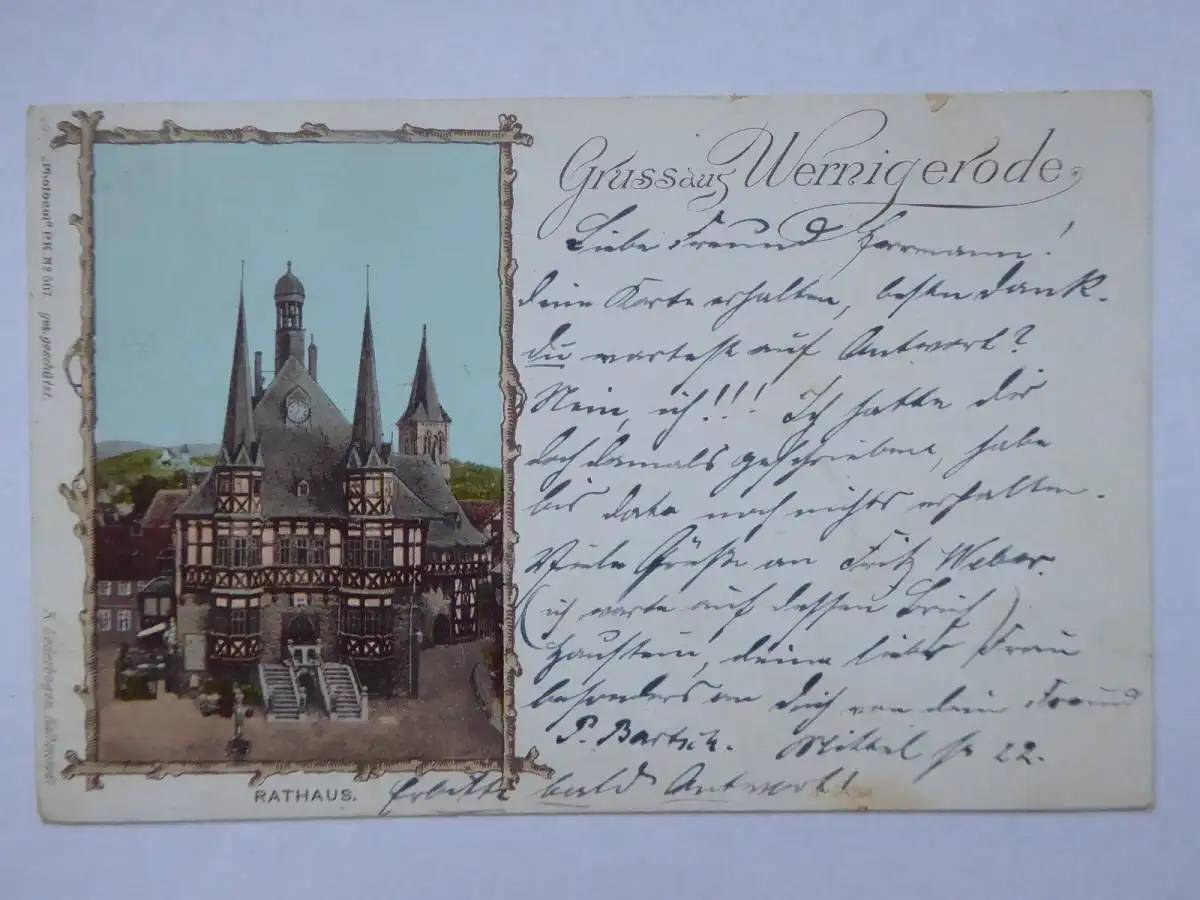 Gruss aus Wernigerode
Liebe Freund Herrmann!
deine Karte erhalten, besten Dank.
du wartest auf Antwort?
Nein, ich!!! Ich hatte dir
doch damals geschrieben, habe
bis dato noch nichts erhalten.
Viele Grüße an Fritz Weber.
(ich warte auf dessen Brief)
Haustein, deine liebe Frau
besonders an dich von dein Freund
P. Bartsch. Mittelstr 22.
Erbitte bald Antwort!
RATHAUS.
"Photocol" PK No 307. ges. geschützt.
R. Lederbogen, Halberstadt